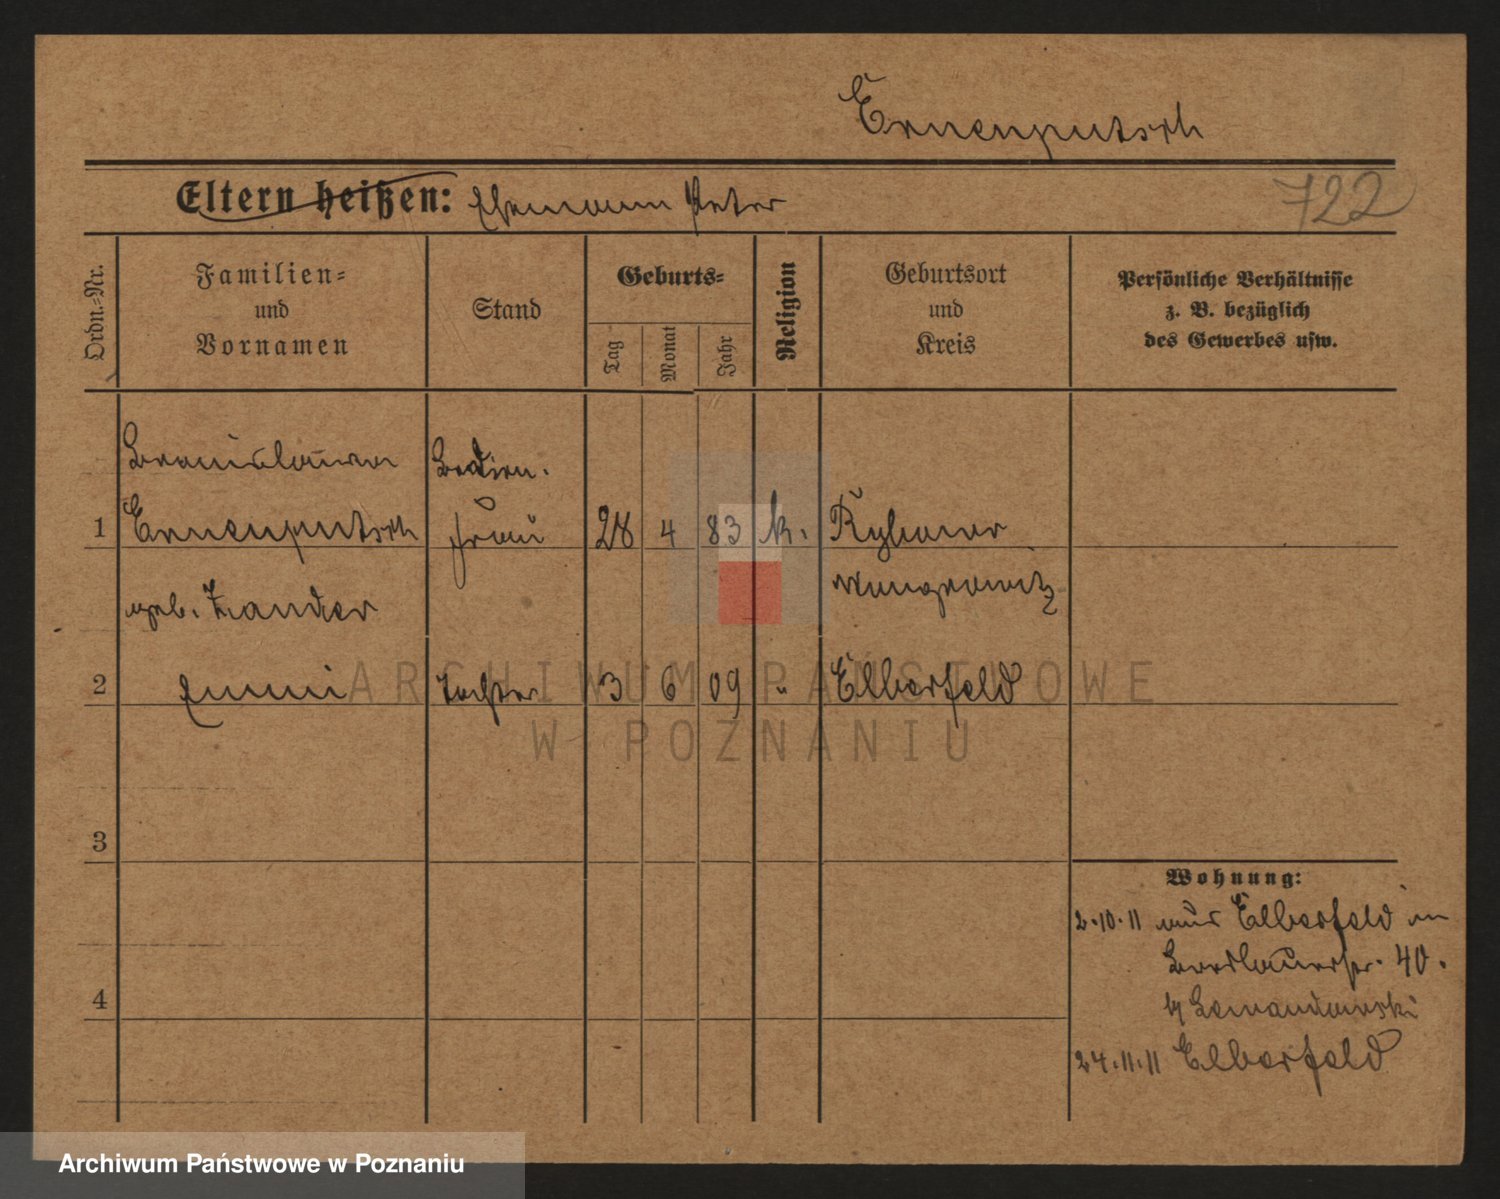 Ernenputsch
Eltern heißen: Ehemann Peter
722
Ordn.=Nr.
Familien=
und
Vornamen
Stand
Geburts=
Tag
Monat
Jahr
Religion
Geburtsort
und
Kreis
Persönliche Verhältnisse
z. B. bezüglich
des Gewerbes usw.
Bronislawa
1 Ernenputsch
geb. Zander
frau
28 4 83 k.
Wongrowitz
2 Emmi Tochter 3 6 09 " Elberfeld
3
4
Wohnung:
2.10.11 aus Elberfeld in
40.
b/ Lewandowski
24.11.11 Elberfeld
ARCHIWUM PAŃSTWOWE
W POZNANIU
Archiwum Państwowe w Poznaniu